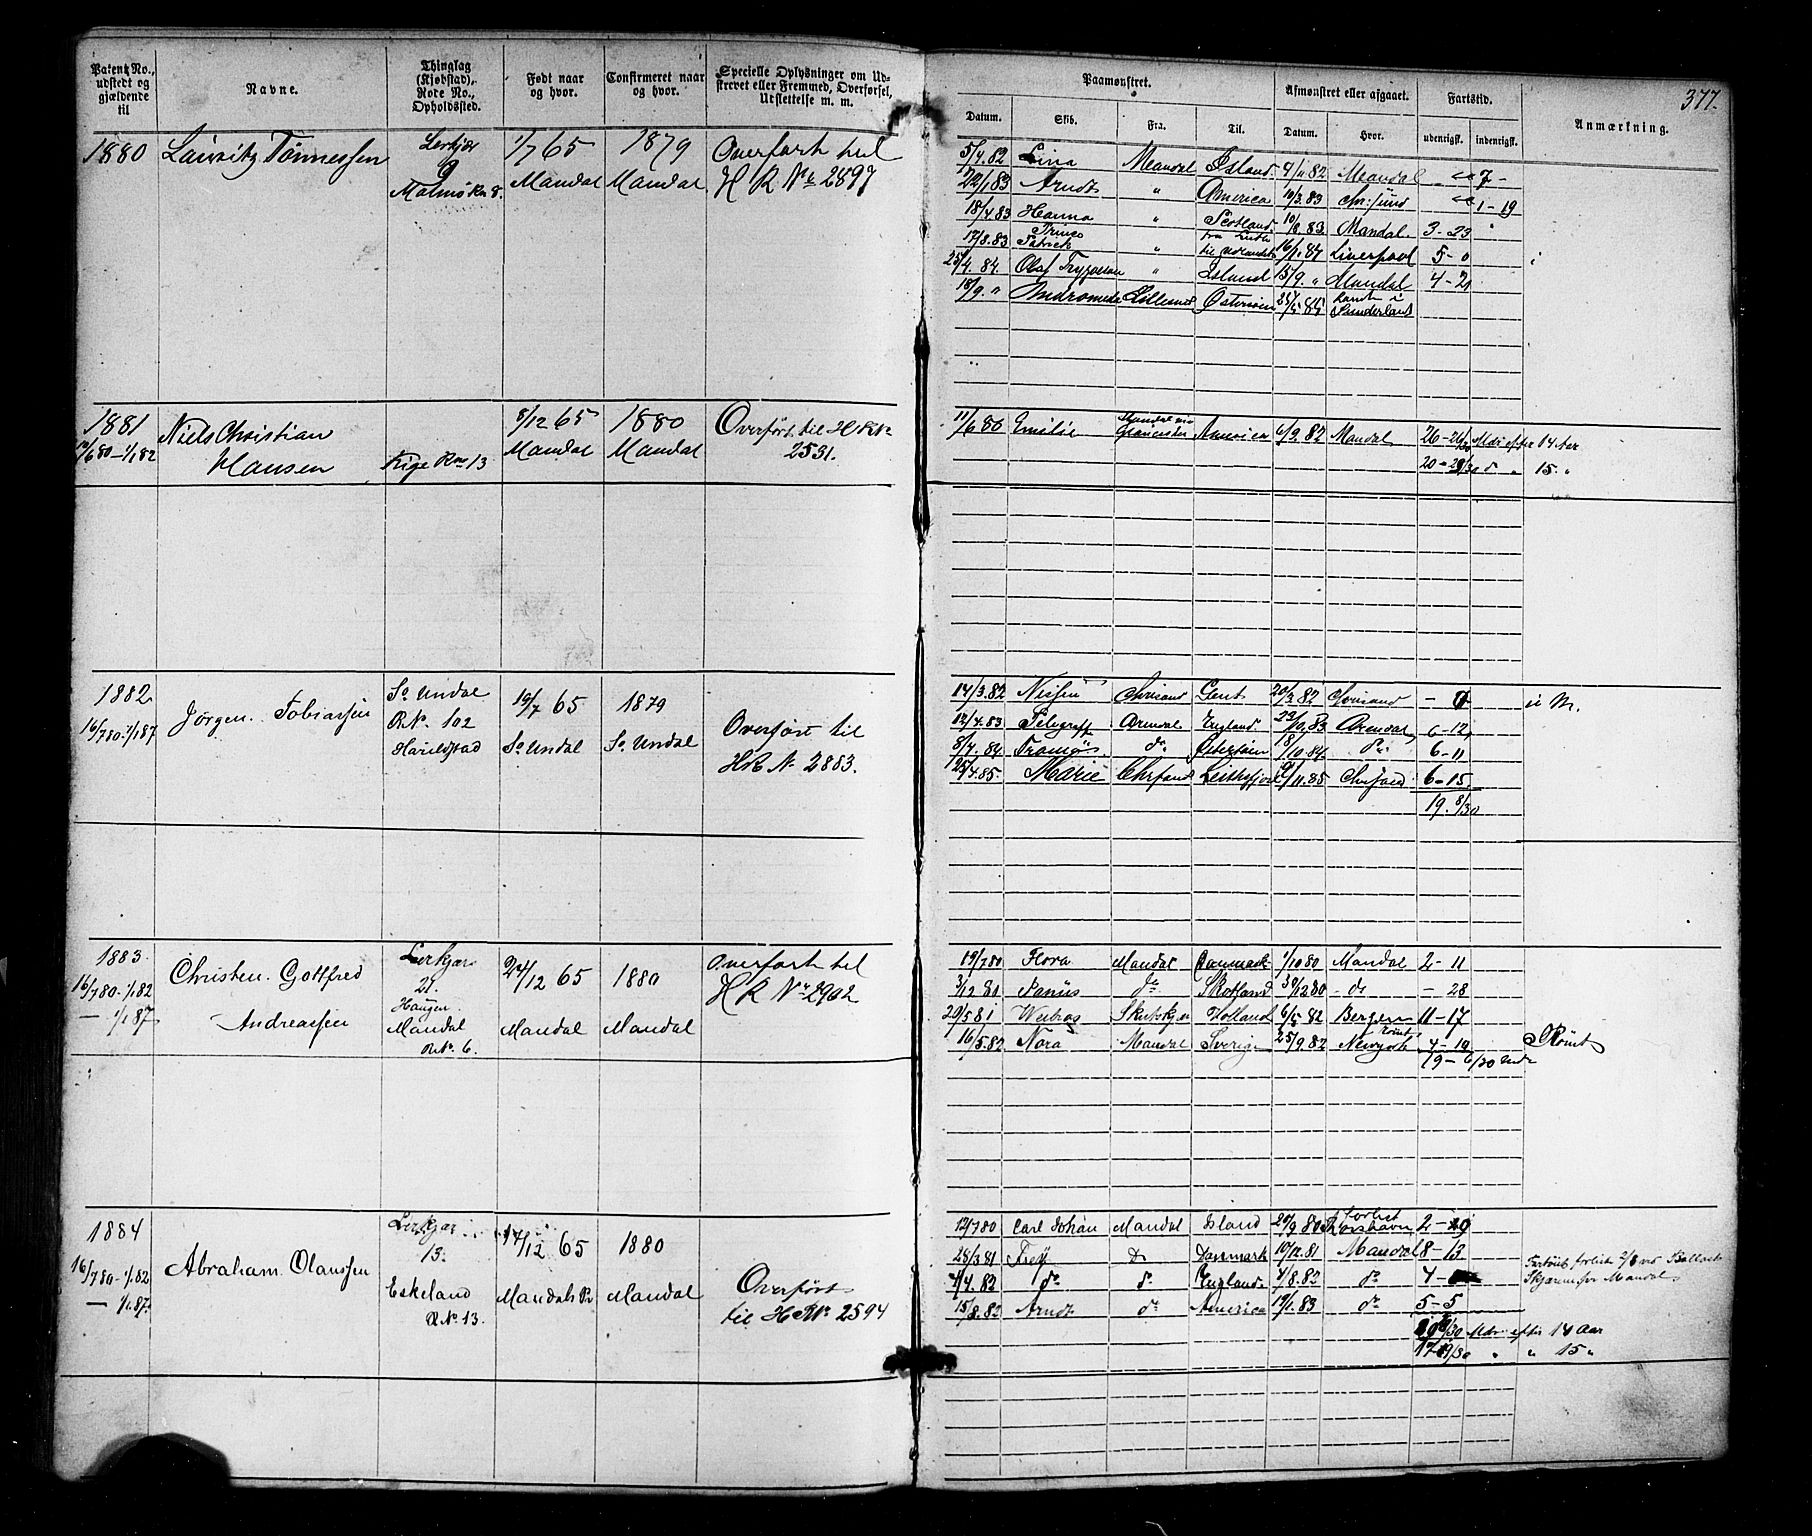 Patent No., udstedt og gjældende til
Navne.
Thinglag (Kjøbstad), Rode No., Opholdssted.
Født naar og hvor.
Confirmeret naar og hvor.
Specielle Oplysninger om Udskrevet eller Fremmed, Overførsel, Utslettelse m. m.
Paamønstret.
Afmønstret eller afgaaet.
Fartstid.
377.
Datum.
Skib.
Fra.
Til.
Datum.
Hvor.
udenrigsk.
indenrigsk.
Anmærkning.
1880
Lauritz Tønnessen
Lerkjær
9
Malmø R.N 8.
1/7 65
Mandal
1879
Mandal
Overført til
H R No 2597
5/4.82 Lina Mandal Island 9/11 82 Mandal 7 -
22/1 83 Arndt " America 19/3.83 1-19
18/4.83 Hanna " Scotland 10/8 83 Mandal 3-23
17/8.83 Prince Patrick " 16/1.84 Liverpool 5-0
25/4.84. Olaf Trygvason " Island 15/9. " Mandal 4-21
18/9. " Andromeda Lillesand Østersøen Rømt i Sunderland
1881
10/6 80 - 1/1 82
Niels Christian
Hansen
Kige R.No 13
8/12 65
Mandal
1880
Mandal
Overført til H R No
2531.
11/6 80 Emilie America 6/9.82 Mandal 26-26/30 Mdr efter 14 Aar
20-29/30 d " 15 "
1882
16/7 80 - 1/1 87
Jørgen Tobiassen
So Undal
R.No. 102
Haraldstad
19/7 65
So Undal
1879
So Undal
Overført til
H.R. No 2883.
14/3.82 Chrisand Gent 20/3 82 Chrisand
12/4.83 Telegraf Arendal England Arendal 6-12
8/4.84 do 18/10.84 do 6-11
25/4.85. Marie Chrsand 9/11.85 Chrsand 6-15
19. 8/30
1883
16/7 80 - 1/1 82
— 1/1 87
Christen Gottfred
Andreassen
Lerkjær
21.
Haugen
Mandal
R.No. 6.
24/12 65
Mandal
1880
Mandal
Overført til
H R No 2902
19/7 80 Flora Mandal Danmark 1/10 80 Mandal 2-11
3/12 80 do Skotland 30/12 80 do - 28
29/5 81 Holland 6/5 82 Bergen 11-17
16/5.82 Nora Mandal Sverige 25/9.82 Newyork 4-19 Rømt
19- 6/30 Mdr
1884
16/7 80 - 1/1 82
— 1/1 87.
Abraham Olaussen
Lerkjær
13.
Eskeland
R.No 13.
17/12 65
Mandals
1880
Mandal
Overført
til H R No 2594
12/7 80 Carl Johan Mandal Island 29/9 80 Forlist Thorshavn 2-
28/3 81 Freÿ do Danmark 10/12 81 Mandal 8-13
4/4.82 do do England 4/8.82 do 4-
15/8.82 Arndt do America 19/1.83 do 5-5
Mdr efter 14 Aar
" " 15 "